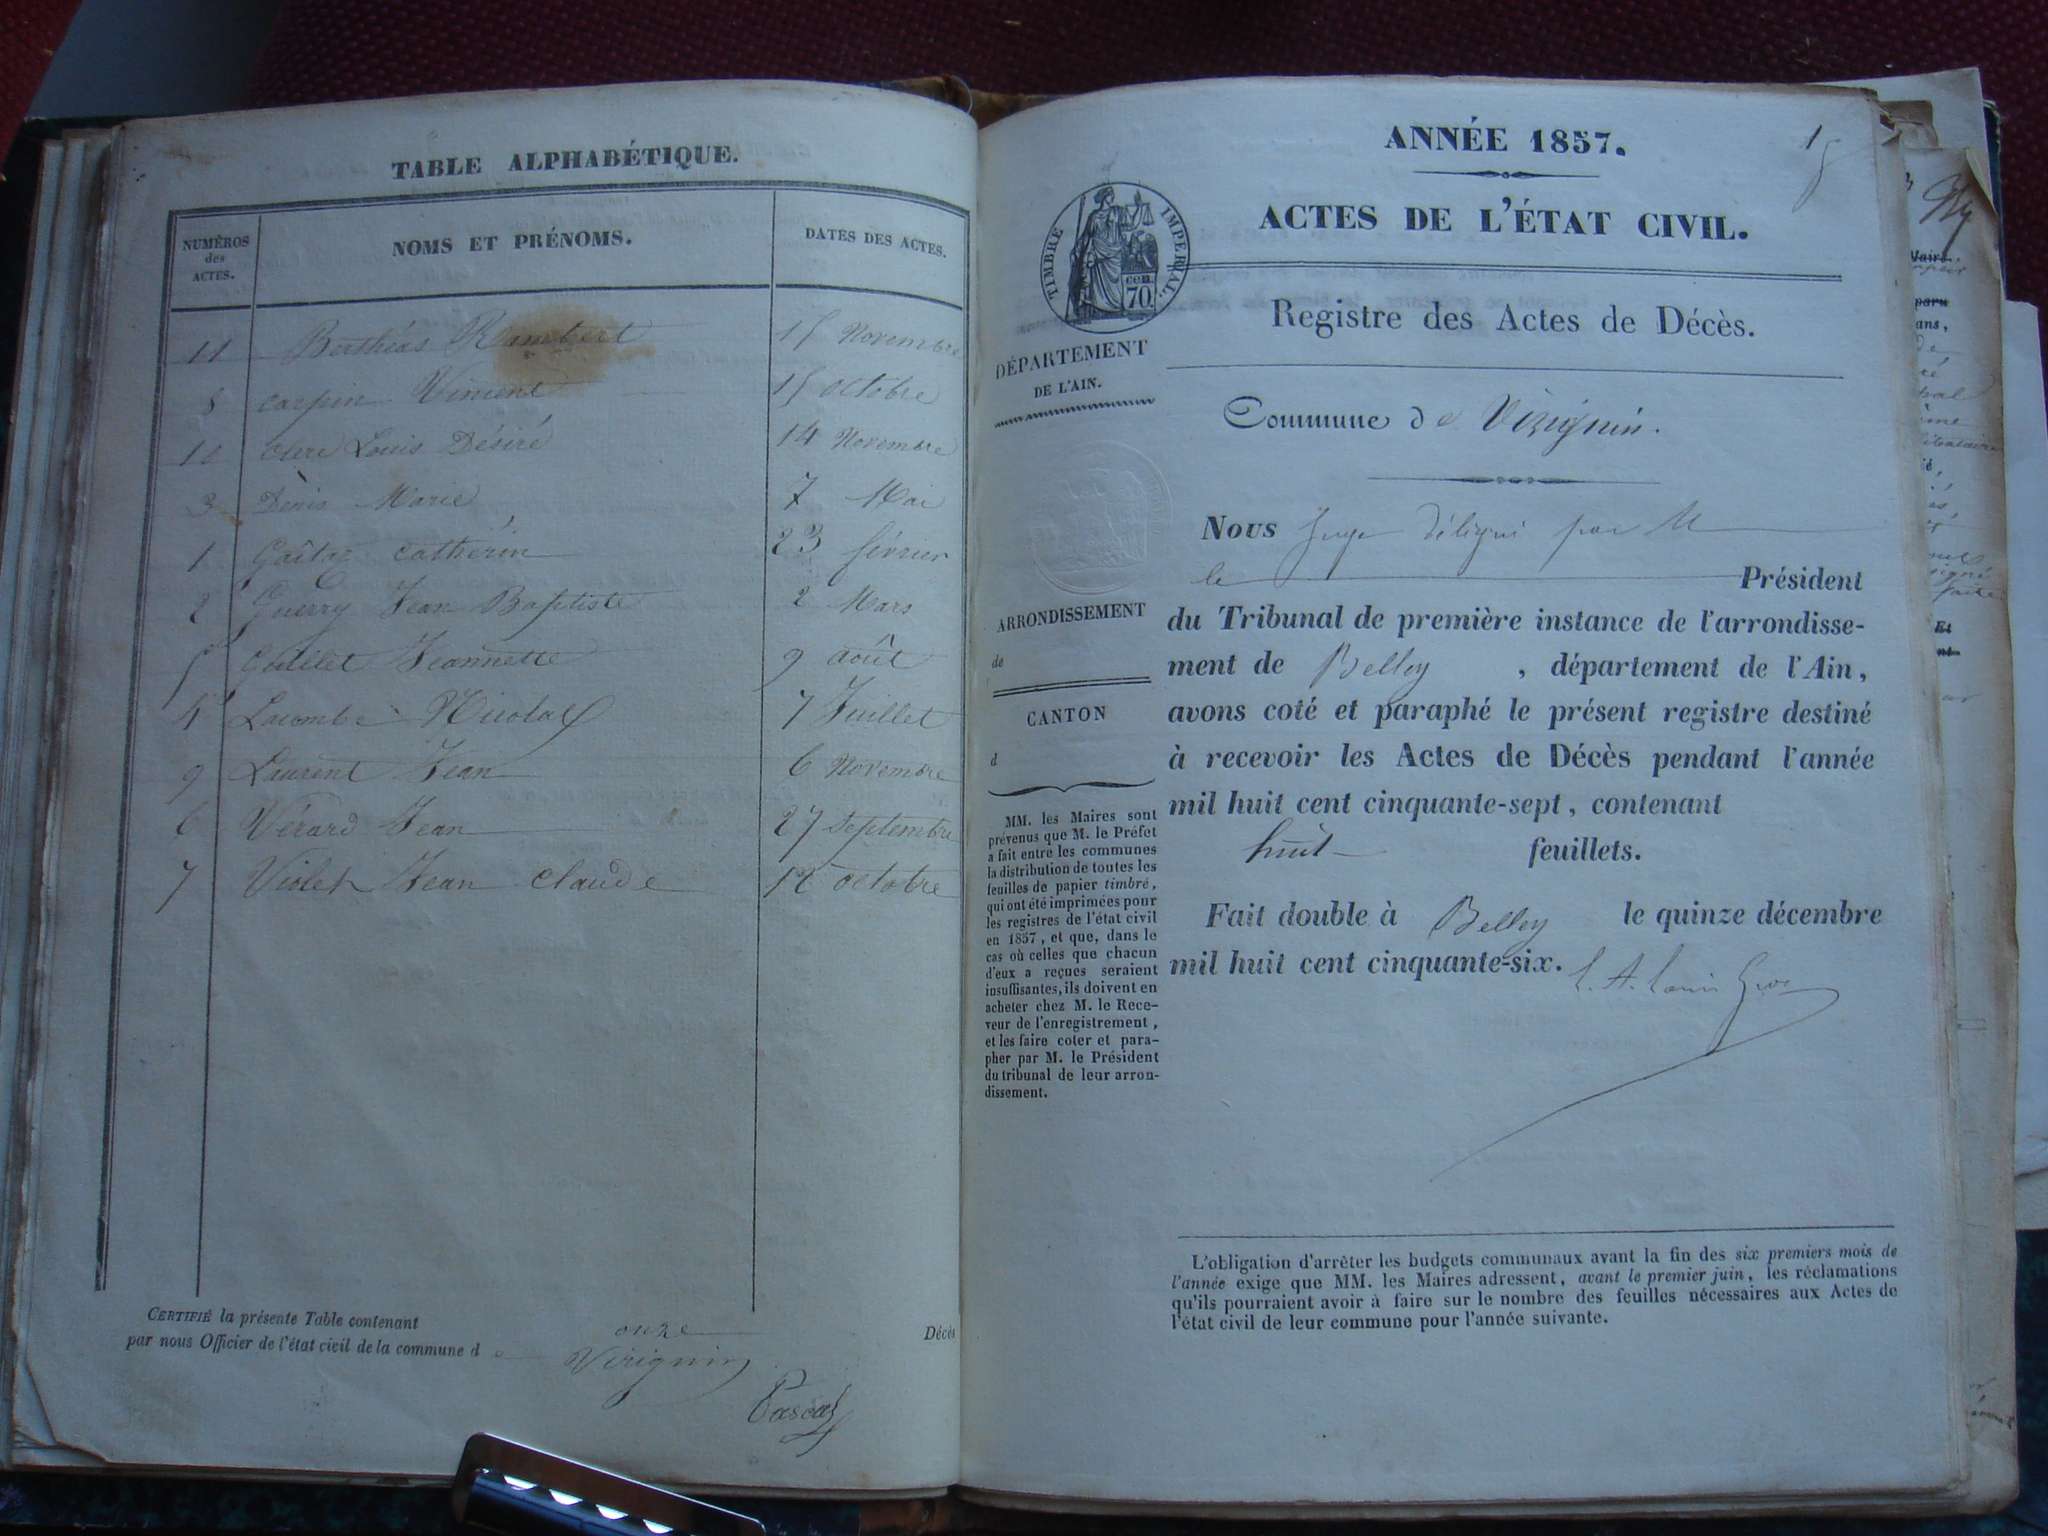 TABLE ALPHABÉTIQUE.
NUMÉROS des ACTES. NOMS ET PRÉNOMS. DATES DES ACTES.
11 Berthéas Rambert 15 Novembre
8 Carpin Vincent 15 octobre
Clerc Louis Désiré 14 Novembre
3 Dénis Marie 7 Mai
1 Catherin 23 février
2 Guerry Jean Baptiste 2 Mars
5 Jeannette 9 août
4 Lacombe Nicolas 7 Juillet
9 Laurent Jean 6 Novembre
6 Vérard Jean 27 Septembre
7 Violet Jean Claude 12 octobre
CERTIFIÉ la présente Table contenant onze Décès
par nous Officier de l'état civil de la commune de Virignin
Pascal
ANNÉE 1857.
1
ACTES DE L'ÉTAT CIVIL.
TIMBRE IMPERIAL.
cen. 70.
Registre des Actes de Décès.
DÉPARTEMENT
DE L'AIN.
Commune de Virignin.
Nous Juge délégué par M
le Président
ARRONDISSEMENT
de
CANTON
d
du Tribunal de première instance de l'arrondisse-
ment de Belley, département de l'Ain,
avons coté et paraphé le présent registre destiné
à recevoir les Actes de Décès pendant l'année
mil huit cent cinquante-sept, contenant
huit feuillets.
Fait double à Belley le quinze décembre
mil huit cent cinquante-six.
MM. les Maires sont
prévenus que M. le Préfet
a fait entre les communes
la distribution de toutes les
feuilles de papier timbré,
qui ont été imprimées pour
les registres de l'état civil
en 1857, et que, dans le
cas où celles que chacun
d'eux a reçues seraient
insuffisantes, ils doivent en
acheter chez M. le Rece-
veur de l'enregistrement,
et les faire coter et para-
pher par M. le Président
du tribunal de leur arron-
dissement.
L'obligation d'arrêter les budgets communaux avant la fin des six premiers mois de
l'année exige que MM. les Maires adressent, avant le premier juin, les réclamations
qu'ils pourraient avoir à faire sur le nombre des feuilles nécessaires aux Actes de
l'état civil de leur commune pour l'année suivante.